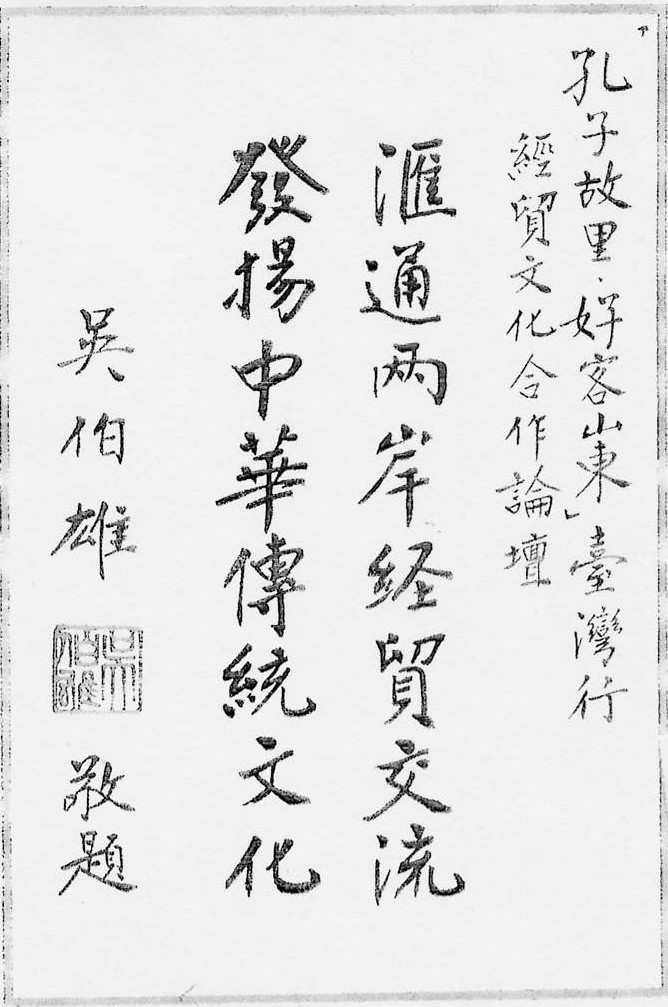 「孔子故里·好客山東」臺灣行
經貿文化合作論壇
滙通两岸经貿交流
發揚中華傳統文化
吳伯雄
吳伯雄
敬題